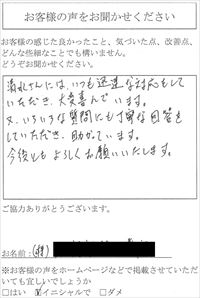 お客様の声をお聞かせください
お客様の感じた良かったこと、気づいた点、改善点、
どんな些細なことでも構いません。
どうぞお聞かせください。
さんには、いつも迅速な対応をして
いただき、大変喜んでいます。
又、いろいろな質問にも丁寧な回答を
していただき、助かっています。
今後ともよろしくお願いいたします。
ご協力ありがとうございます。
お名前：(株)
※お客様の声をホームページなどで掲載させていただ
いても宜しいでしょうか
□はい ☑イニシャルで □ダメ